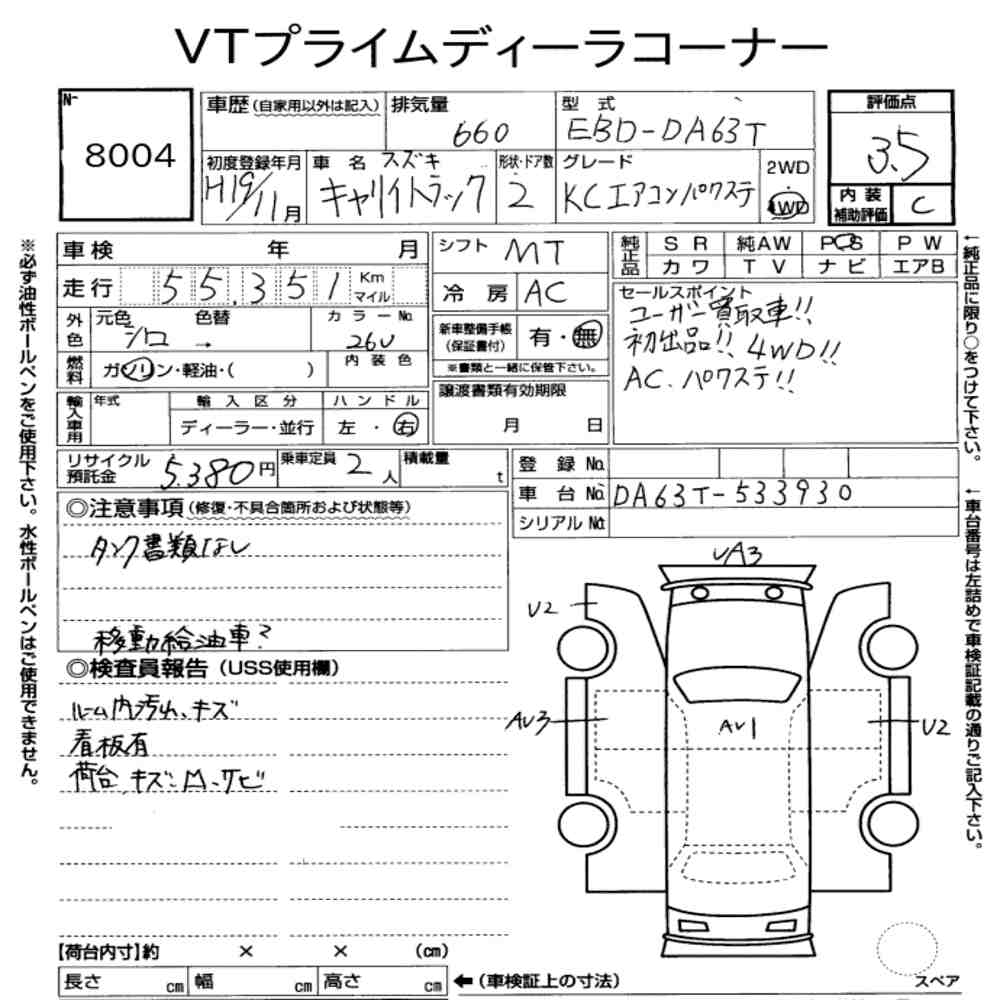 VTプライムディーラコーナー
N-
8004
車歴 (自家用以外は記入)
排気量
660
型 式
EBD-DA63T
評価点
3.5
初度登録年月
H19/11月
車 名 スズキ
キャリイトラック
形状・ドア数
2
グレード
KCエアコンパワステ
2WD
4WD
内 装
補助評価
C
車 検 年 月
シフト MT
純正品
S R 純AW P S P W
カ ワ T V ナ ビ エアB
走 行 55,351 Km
マイル
冷 房 AC
セールスポイント
ユーザー買取車!!
初出品!! 4WD!!
AC.パワステ!!
外色
元色 色替
シロ →
カラーNo.
26U
新車整備手帳
(保証書付)
有・無
※書類と一緒に保管下さい。
燃料
ガソリン・軽油・( )
内 装 色
譲渡書類有効期限
月 日
輸入車用
年式
輸 入 区 分
ディーラー・並行
ハ ン ド ル
左 ・ 右
リサイクル
預託金
5,380円
乗車定員 2人
積載量 t
登 録 No.
車 台 No. DA63T-533930
シリアル No.
◎注意事項 (修復・不具合箇所および状態等)
タンク書類なし
移動給油車?
◎検査員報告 (USS使用欄)
ルーム内汚れ、キズ
看板有
荷台 キズ・凹・サビ
UA3
U2
AU3
AU1
U2
【荷台内寸】約 × × (cm)
長さ cm 幅 cm 高さ cm
← (車検証上の寸法)
スペア
※必ず油性ボールペンをご使用下さい。水性ボールペンはご使用できません。
←純正品に限り○をつけて下さい。
←車台番号は左詰めで車検証記載の通りご記入下さい。